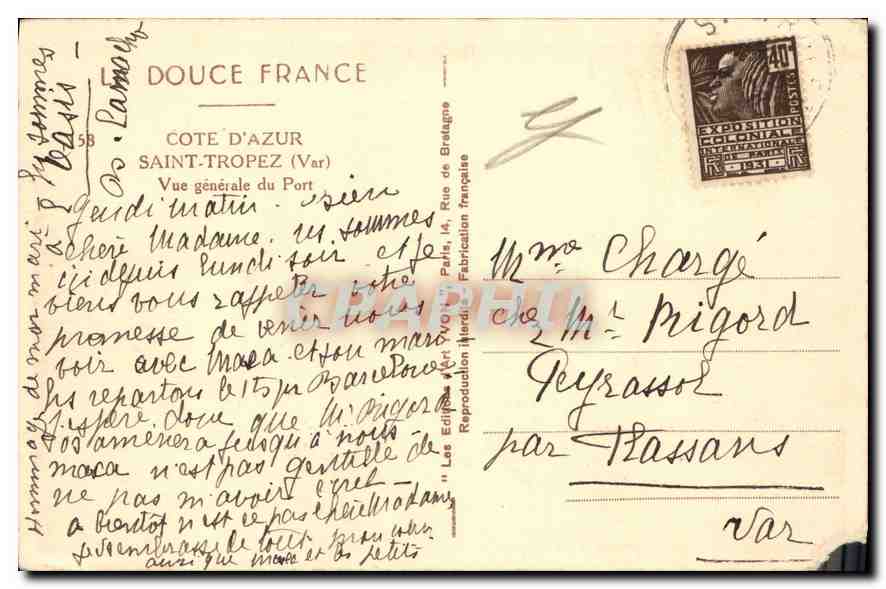 LA DOUCE FRANCE
58
COTE D'AZUR
SAINT-TROPEZ (Var)
Vue générale du Port
Jeudi matin. Bien
chère Madame, ns sommes
ici depuis lundi soir et je
viens vous rappeler votre
promesse de venir nous
voir avec Maca et son mari
Ns repartons le 15 pr Barcelone
J'espère donc que Mr Rigord
vos amènera jusqu'à nous
maca n'est pas gentille de
ne pas m'avoir écrit
a bientôt n'est ce pas chère Madame
je vs embrasse de tout mon cœur
ainsi que maca et les petits
Hommage de mon mari
Ns sommes
à l'Oasis
"Les Editions d'Art YVON" Paris, 14, Rue de Bretagne
Reproduction interdite Fabrication française
40c
POSTES
EXPOSITION
COLONIALE
INTERNATIONALE
DE PARIS
1931
Mme Chargé
chez Mr Rigord
Peyrassol
par Flassans
Var
CPAPHIL